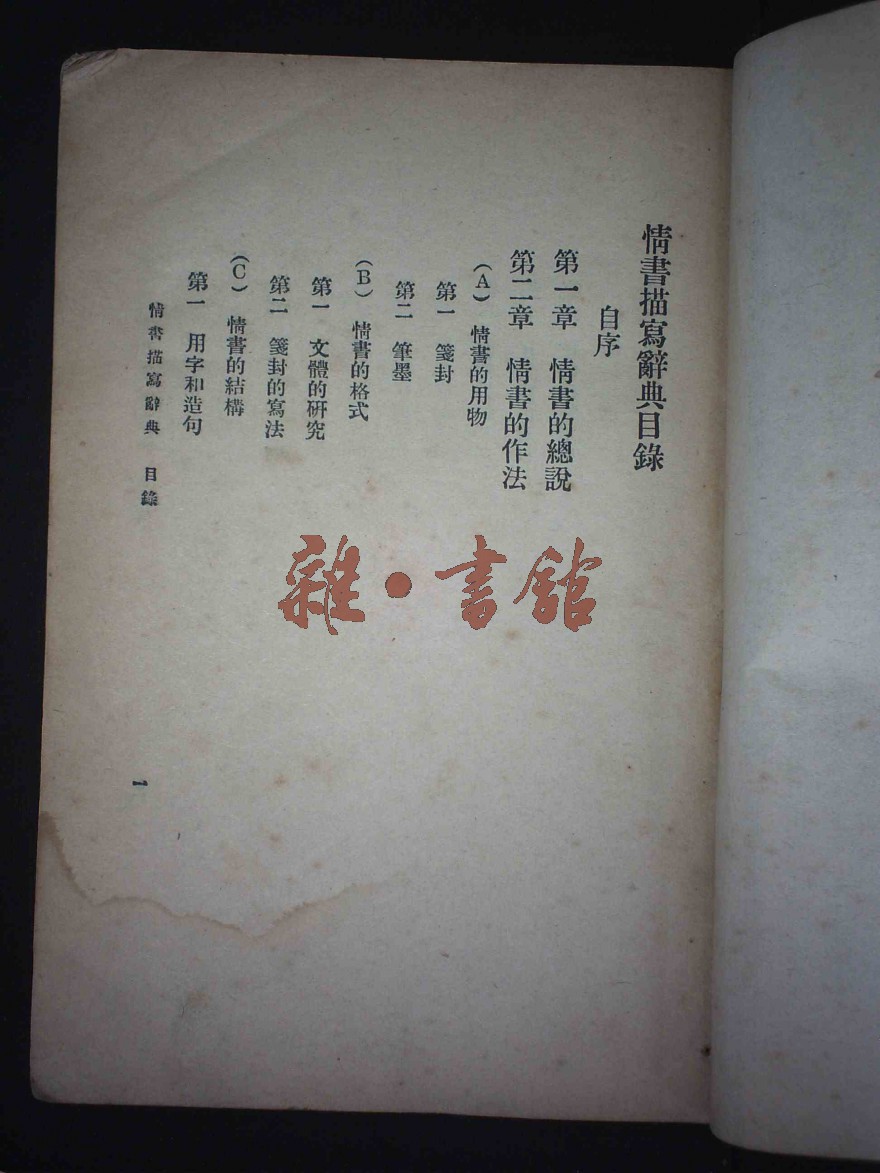 情書描寫辭典目錄
自序
第一章 情書的總說
第二章 情書的作法
(A) 情書的用物
第一 箋封
第二 筆墨
(B) 情書的格式
第一 文體的研究
第二 箋封的寫法
(C) 情書的結構
第一 用字和造句
情書描寫辭典 目錄
1
雜·書館